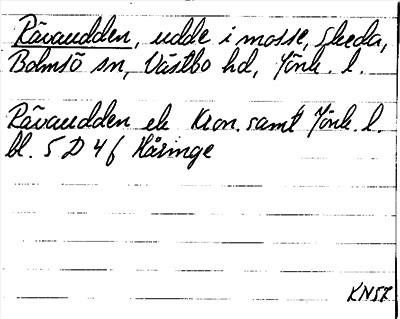 Rävaudden, udde i mosse, Skeda,
Bolmsö sn, Västbo hd, Jönk. l.
Rävaudden ek Kron. samt Jönk. l.
bl. 5 D 4 f Håringe
KN57